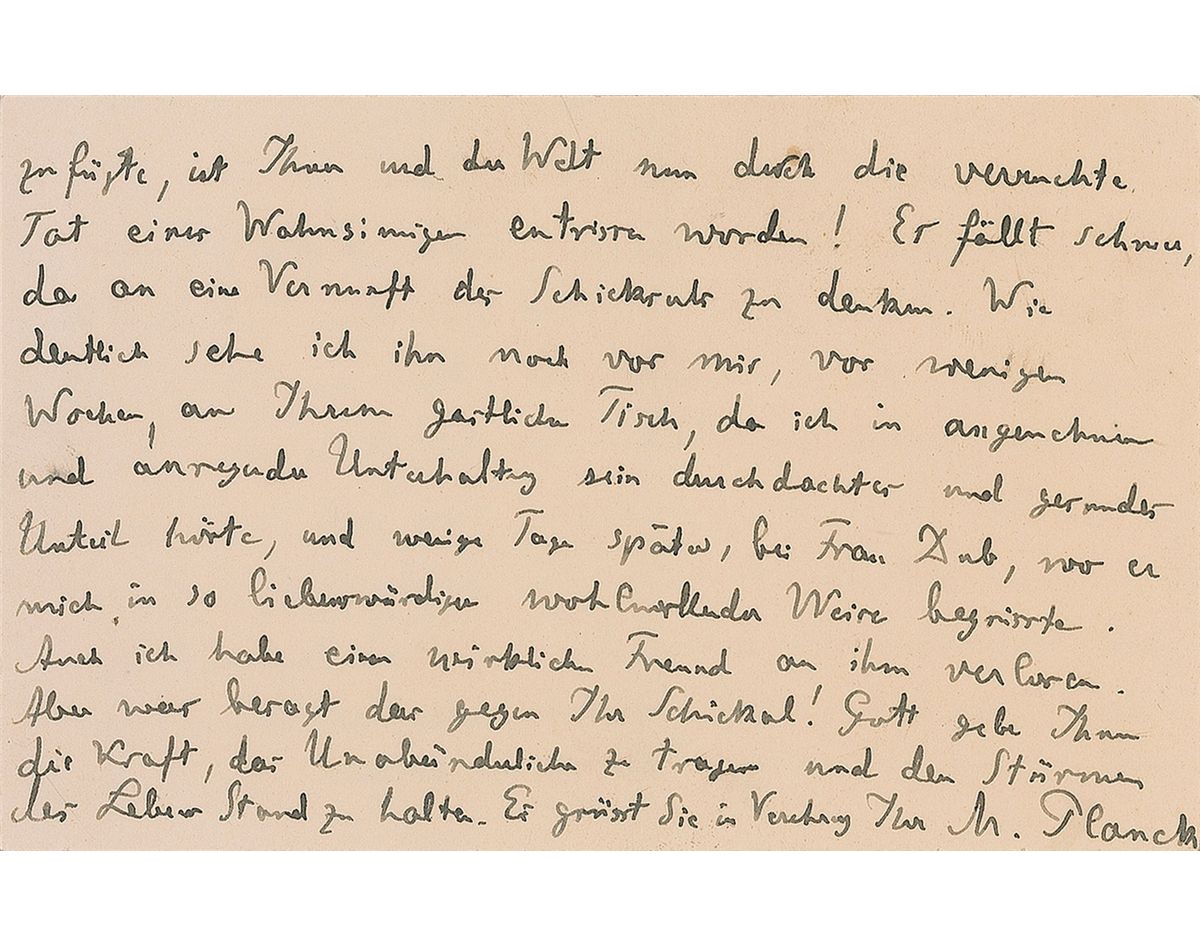 zufügte, ist Ihnen und der Welt nun durch die verruchte
Tat eines Wahnsinnigen entrissen worden! Es fällt schwer,
da an eine Vernunft des Schicksals zu denken. Wie
deutlich sehe ich ihn noch vor mir, vor wenigen
Wochen, an Ihrem gastlichen Tisch, da ich in angenehmer
und anregender Unterhaltung sein durchdachtes und gesundes
Urteil hörte, und wenige Tage später, bei Frau Dub, wo er
mich in so liebenswürdiger wohlwollender Weise begrüsste.
Auch ich habe einen wirklichen Freund an ihm verloren.
Aber was besagt das gegen Ihr Schicksal! Gott gebe Ihnen
die Kraft, das Unabänderliche zu tragen und den Stürmen
des Lebens Stand zu halten. Es grüsst Sie in Verehrung Ihr M. Planck